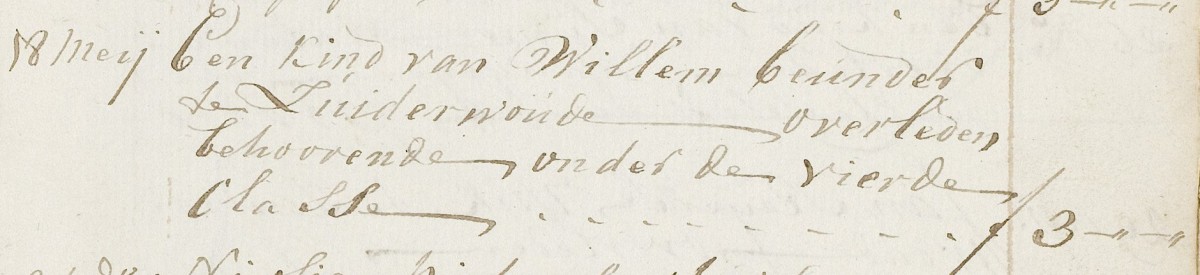 18 Meij Een kind van Willem Beunder
te Zuiderwoude overleden
behoorende onder de vierde
Classe - - - - - - - - / 3 -"-"